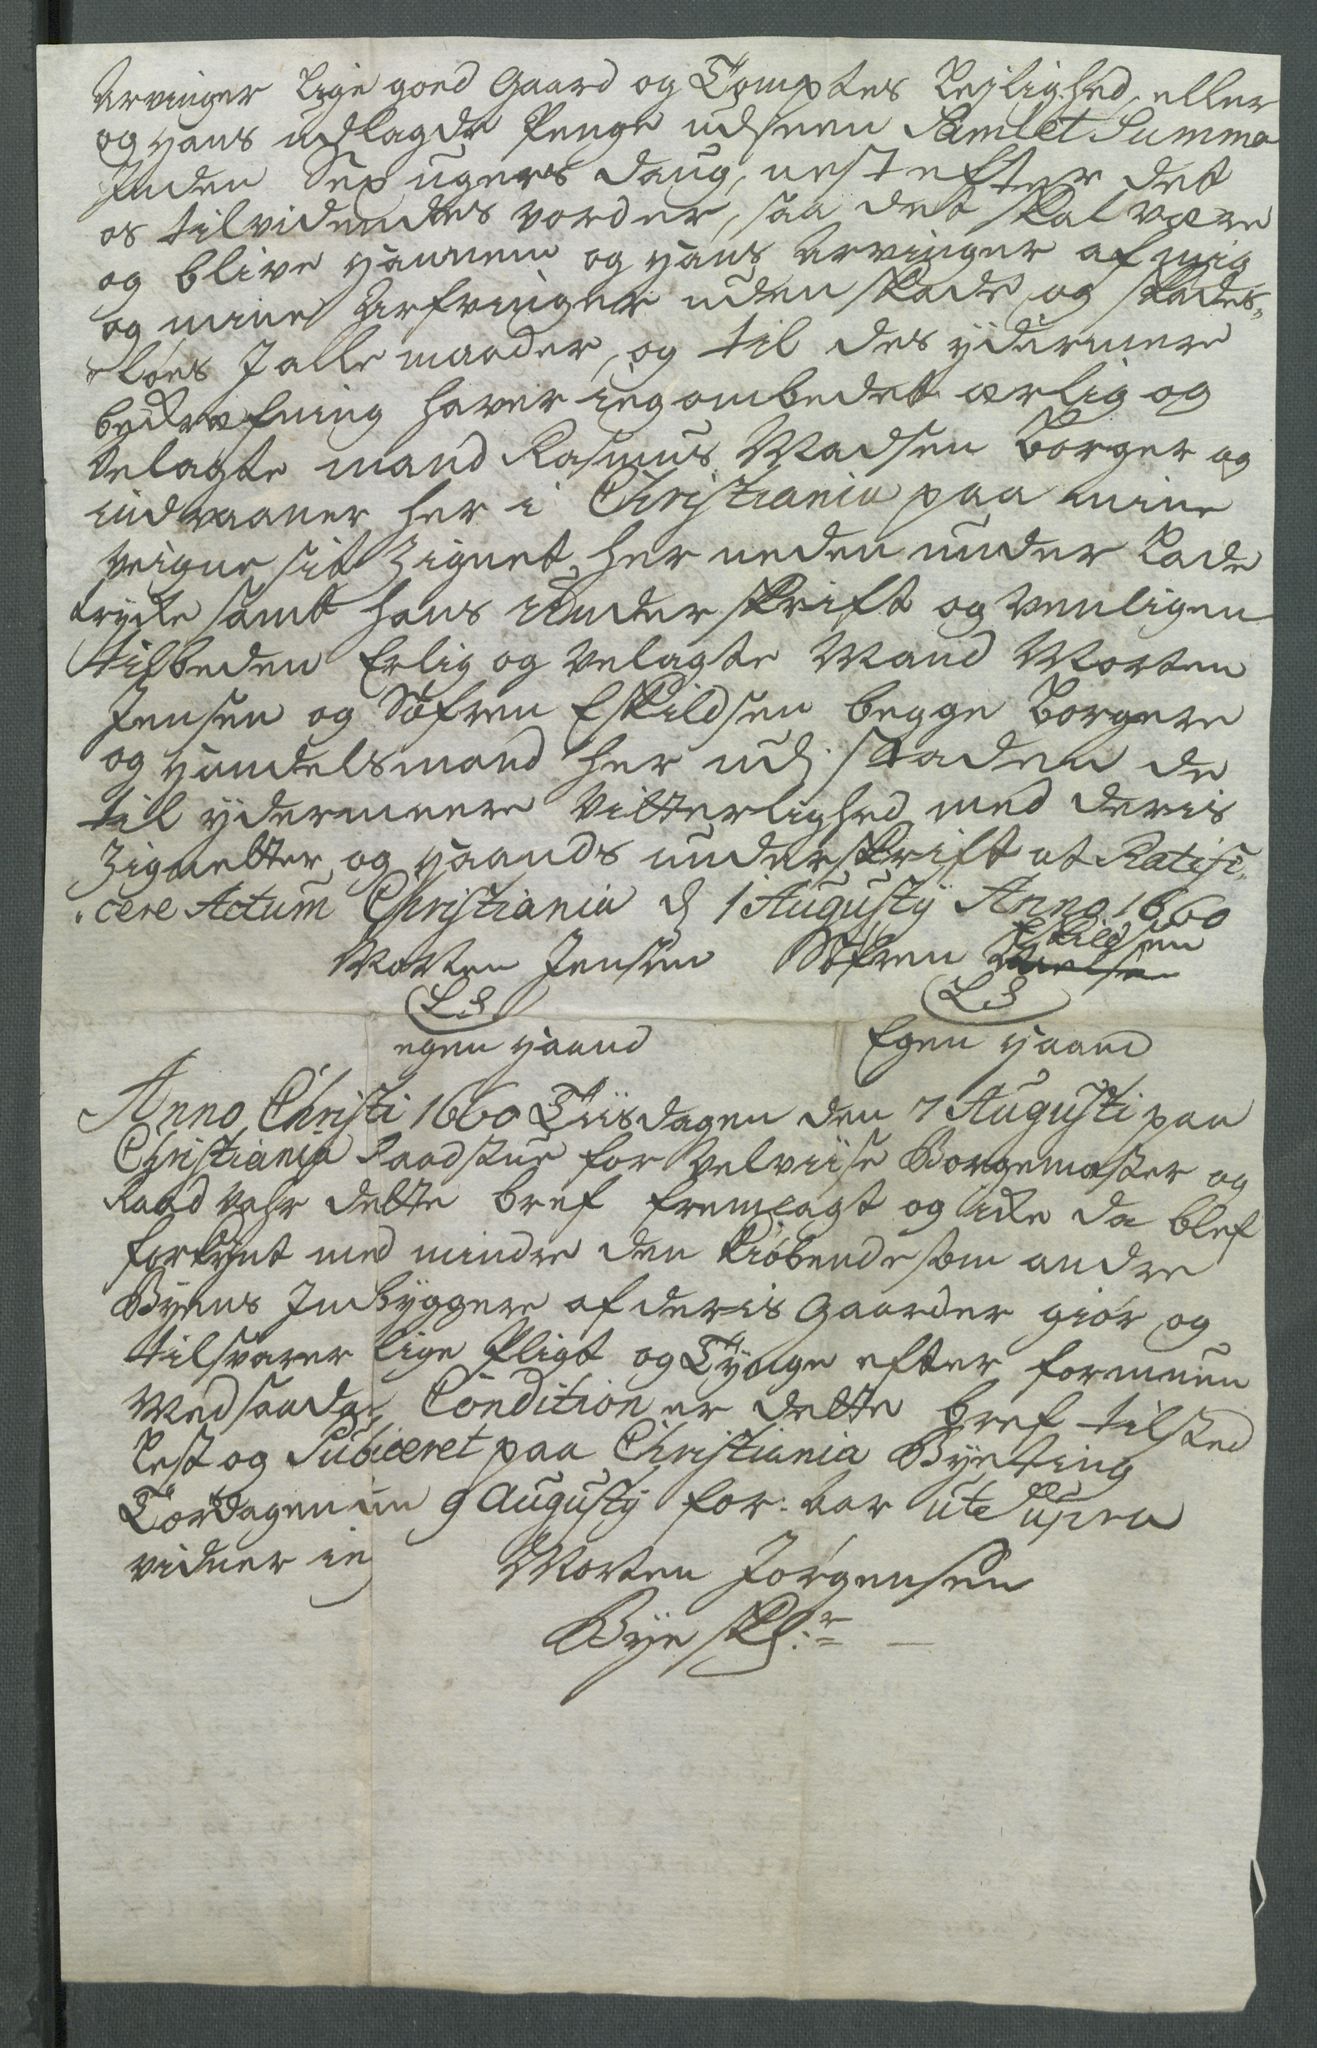 Arvinger Lige goed Gaard og Tomptes Lejlighed, eller
og hans udlagde Penge udj een Samlet Summa
Inden Sex ugers daug, nest efter det
os tilvidendes vorder, saa det skal være
og blive hannem og hans Arvinger af mig
og mine Arfvinger uden skade og skades„
„løes J alle maader, og til des ydermere
bekræfning haver ieg ombedet ærlig og
Velagte mand Rasmus Madsen Borger og
indvaaner her i Christiania paa mine
veigne sit Zignet her neden under Lade
trykke samt hans under skrift og venligen
tilbeden Erlig og Velagte Mand Morten
Jensen og Søfren Eskildsen begge Borgere
og Handelsmænd her udj staden de
til ydermeere Vitterlighed med deris
Zignetter og haands underskrift at Ratifi„
„cere Actum Christiania d 1 Augustij Anno 1660
Morten Jensen Søfren Eskildsen
LS LS
egen haand Egen haand
Anno Christi 1660 Tiisdagen den 7 Augusti paa
Christiania Raadstue for Velviise Borgemæster og
Raad vahr dette bref fremlagt og ikke da blef
forkynt med mindre den Kiøbende som andre
Byens Indbyggere af deris Gaarder giør og
tilsvarer lige Pligt og Tynge efter formuen
Med saadan Condition er dette bref tilsted
Lest og Publiceret paa Christiania Byeting
Torsdagen den 9 Augustij for: Aar ut Supra
vidner ieg Morten Jørgensen
Bye skr: